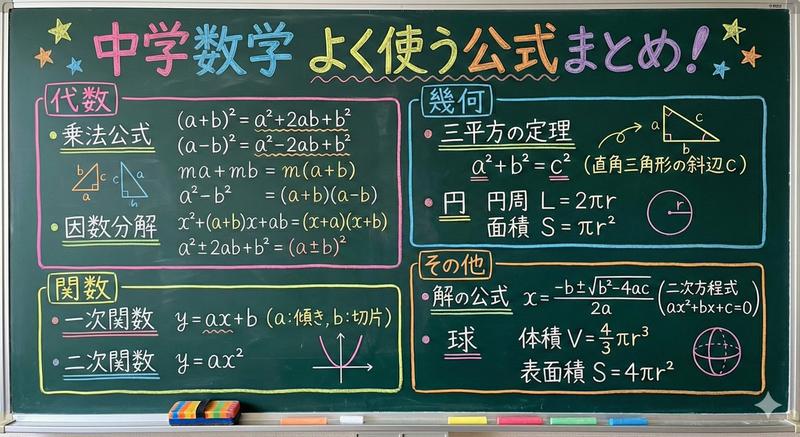 中学数学 よく使う公式まとめ!
代数
乗法公式
(a+b)² = a²+2ab+b²
(a-b)² = a²-2ab+b²
b c a
c a b
ma+mb = m(a+b)
a²-b² = (a+b)(a-b)
因数分解
x²+(a+b)x+ab=(x+a)(x+b)
a²±2ab+b² = (a±b)²
関数
一次関数 y=ax+b (a:傾き, b:切片)
二次関数 y=ax²
幾何
三平方の定理
a c b
a²+b² = c² (直角三角形の斜辺c)
円 円周 L=2πr
面積 S=πr²
r
その他
解の公式 x = (-b±√(b²-4ac))/2a (二次方程式
ax²+bx+c=0)
球 体積 V=4/3πr³
表面積 S=4πr²